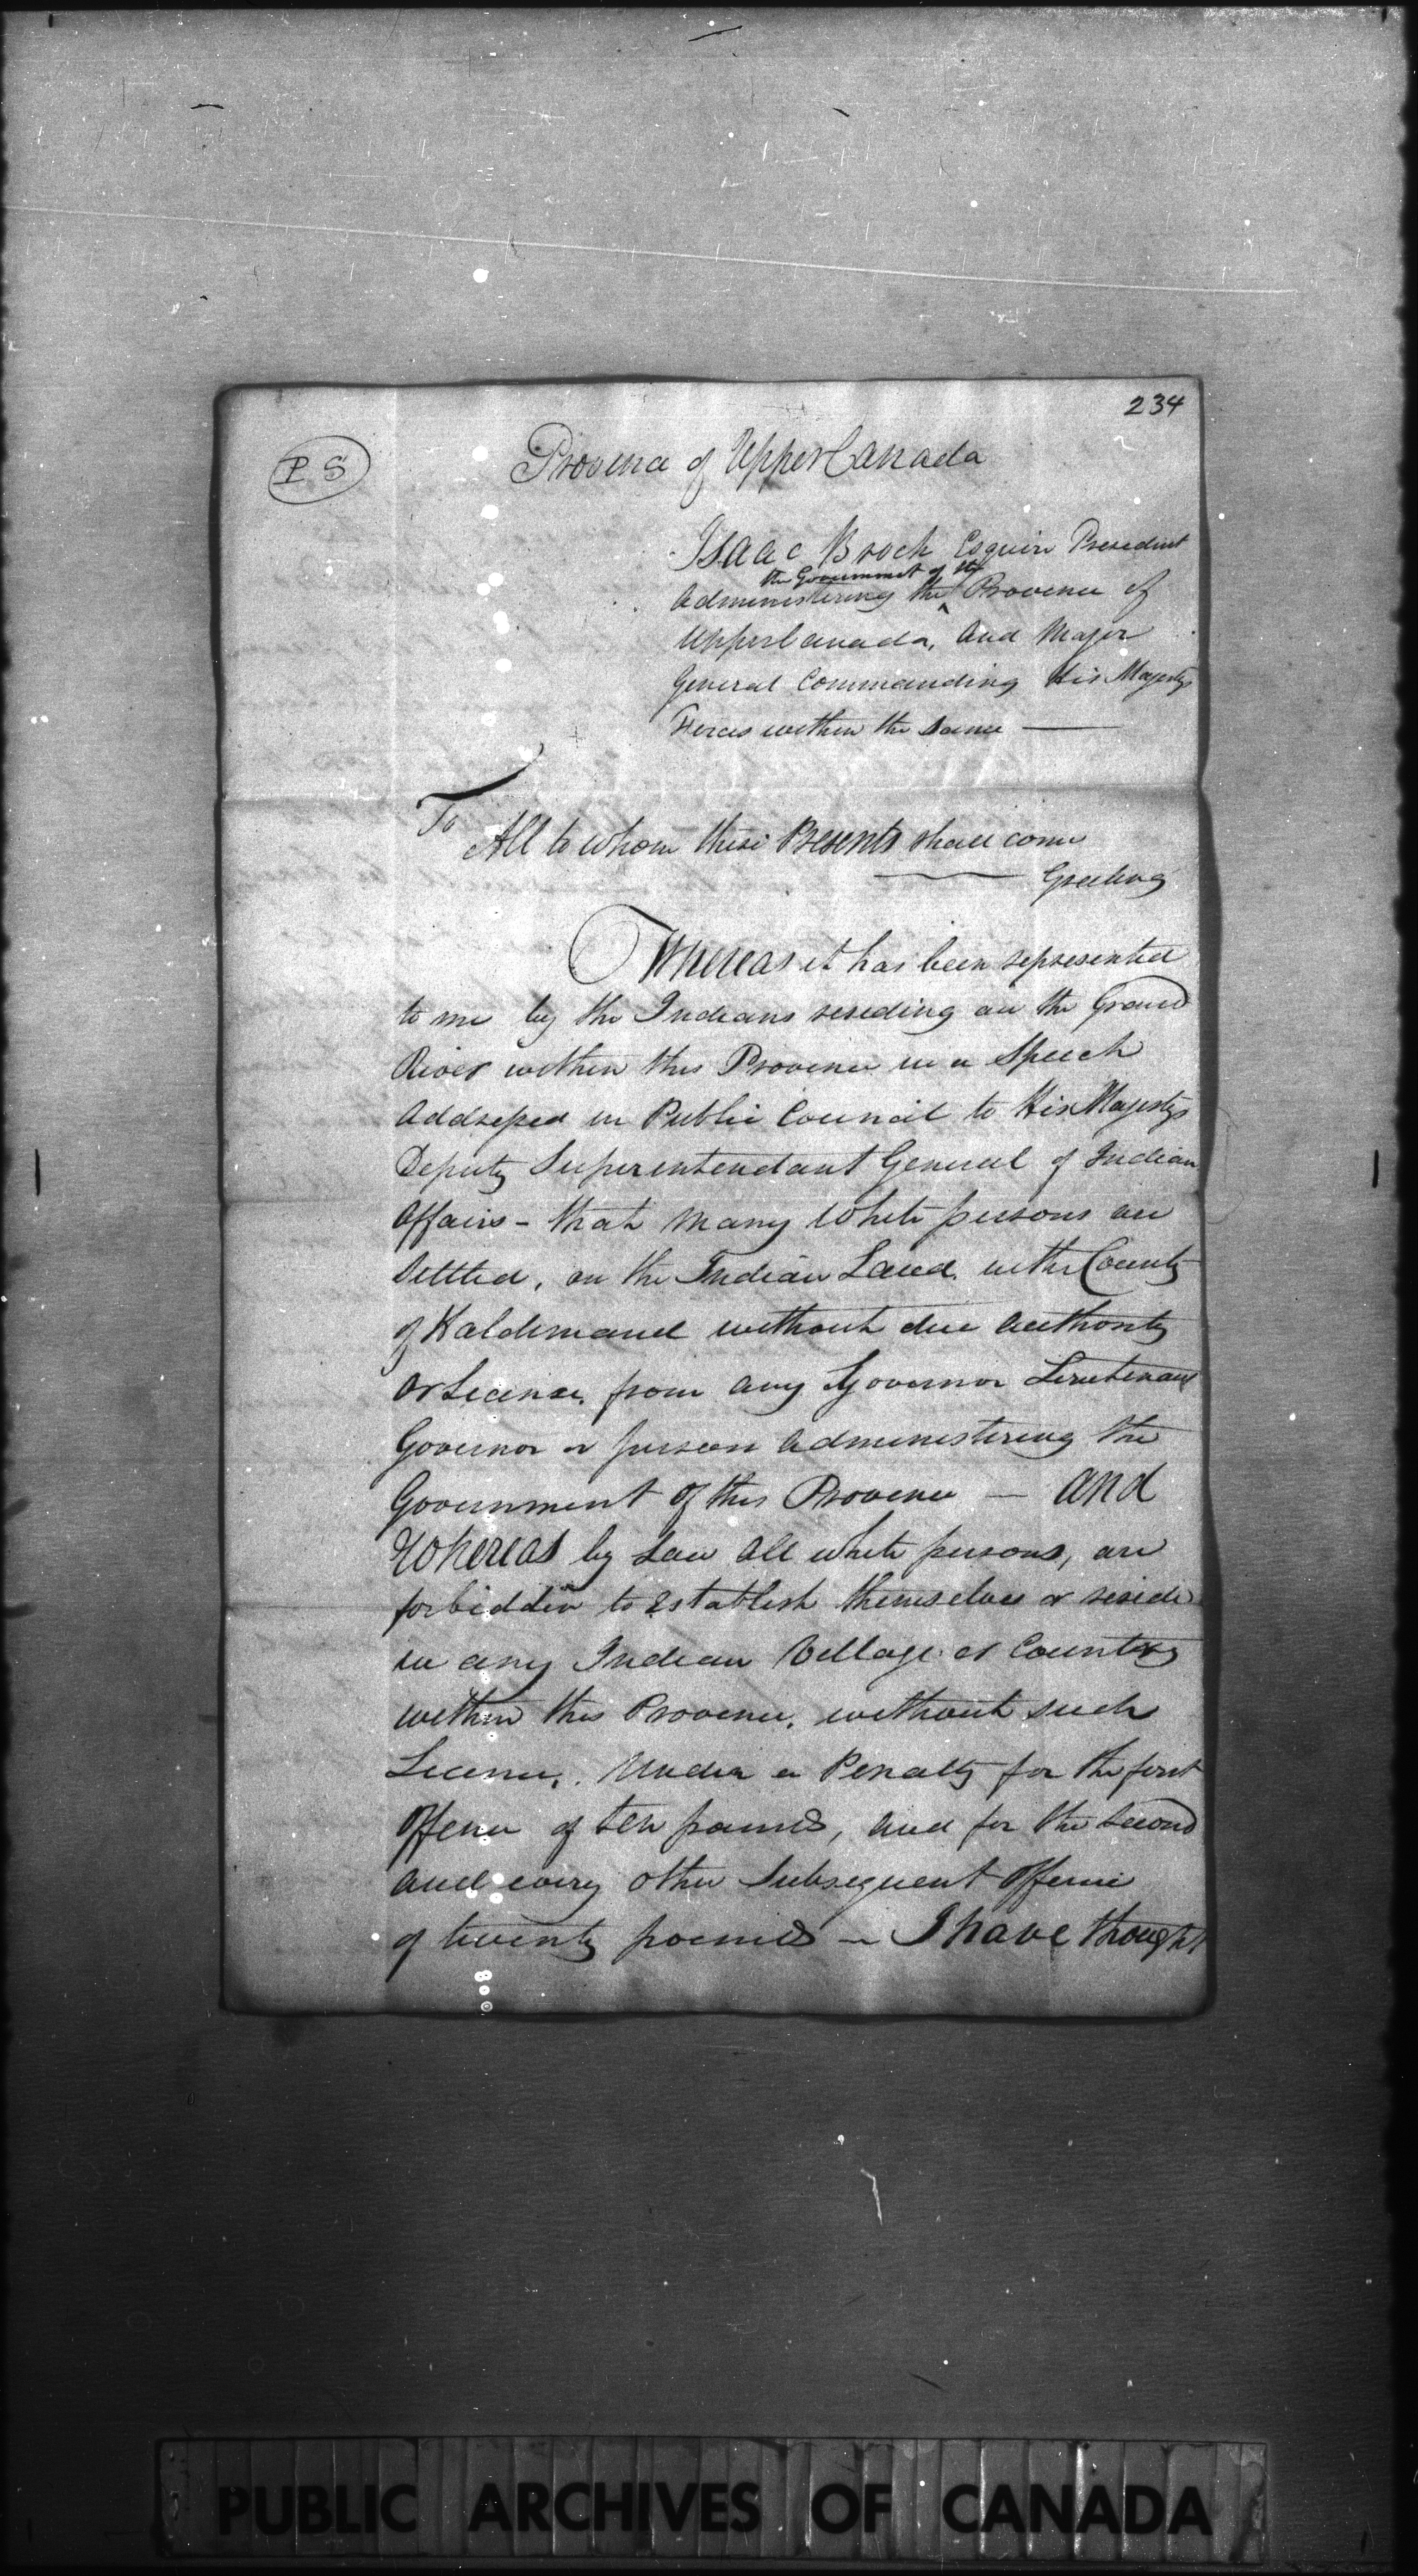 234
P S
Province of Upper Canada
Isaac Brock Esquire President
the Government of the
Administering the Province of
Upper Canada, and Major
General Commanding His Majestys
Forces within the Same
To
All to whom these Presents shall come
Greeting
Whereas it has been represented
to me by the Indians residing on the Grand
River within this Province in a Speech
Addressed in Public Council to His Majestys
Deputy Superintendant General of Indian
Affairs - that many White persons are
Settled, on the Indian Land in the County
of Haldimand without due authority
or License from any Governor Lieutenant
Governor or person administering the
Government of this Province — and
Whereas by Law all white persons, are
forbidden to Establish themselves or reside
in any Indian Village or Country
within this Province, without such
License, Under a Penalty for the first
Offence of ten pounds, and for the Second
and every other Subsequent Offence
of twenty pounds – I have thought
PUBLIC ARCHIVES OF CANADA